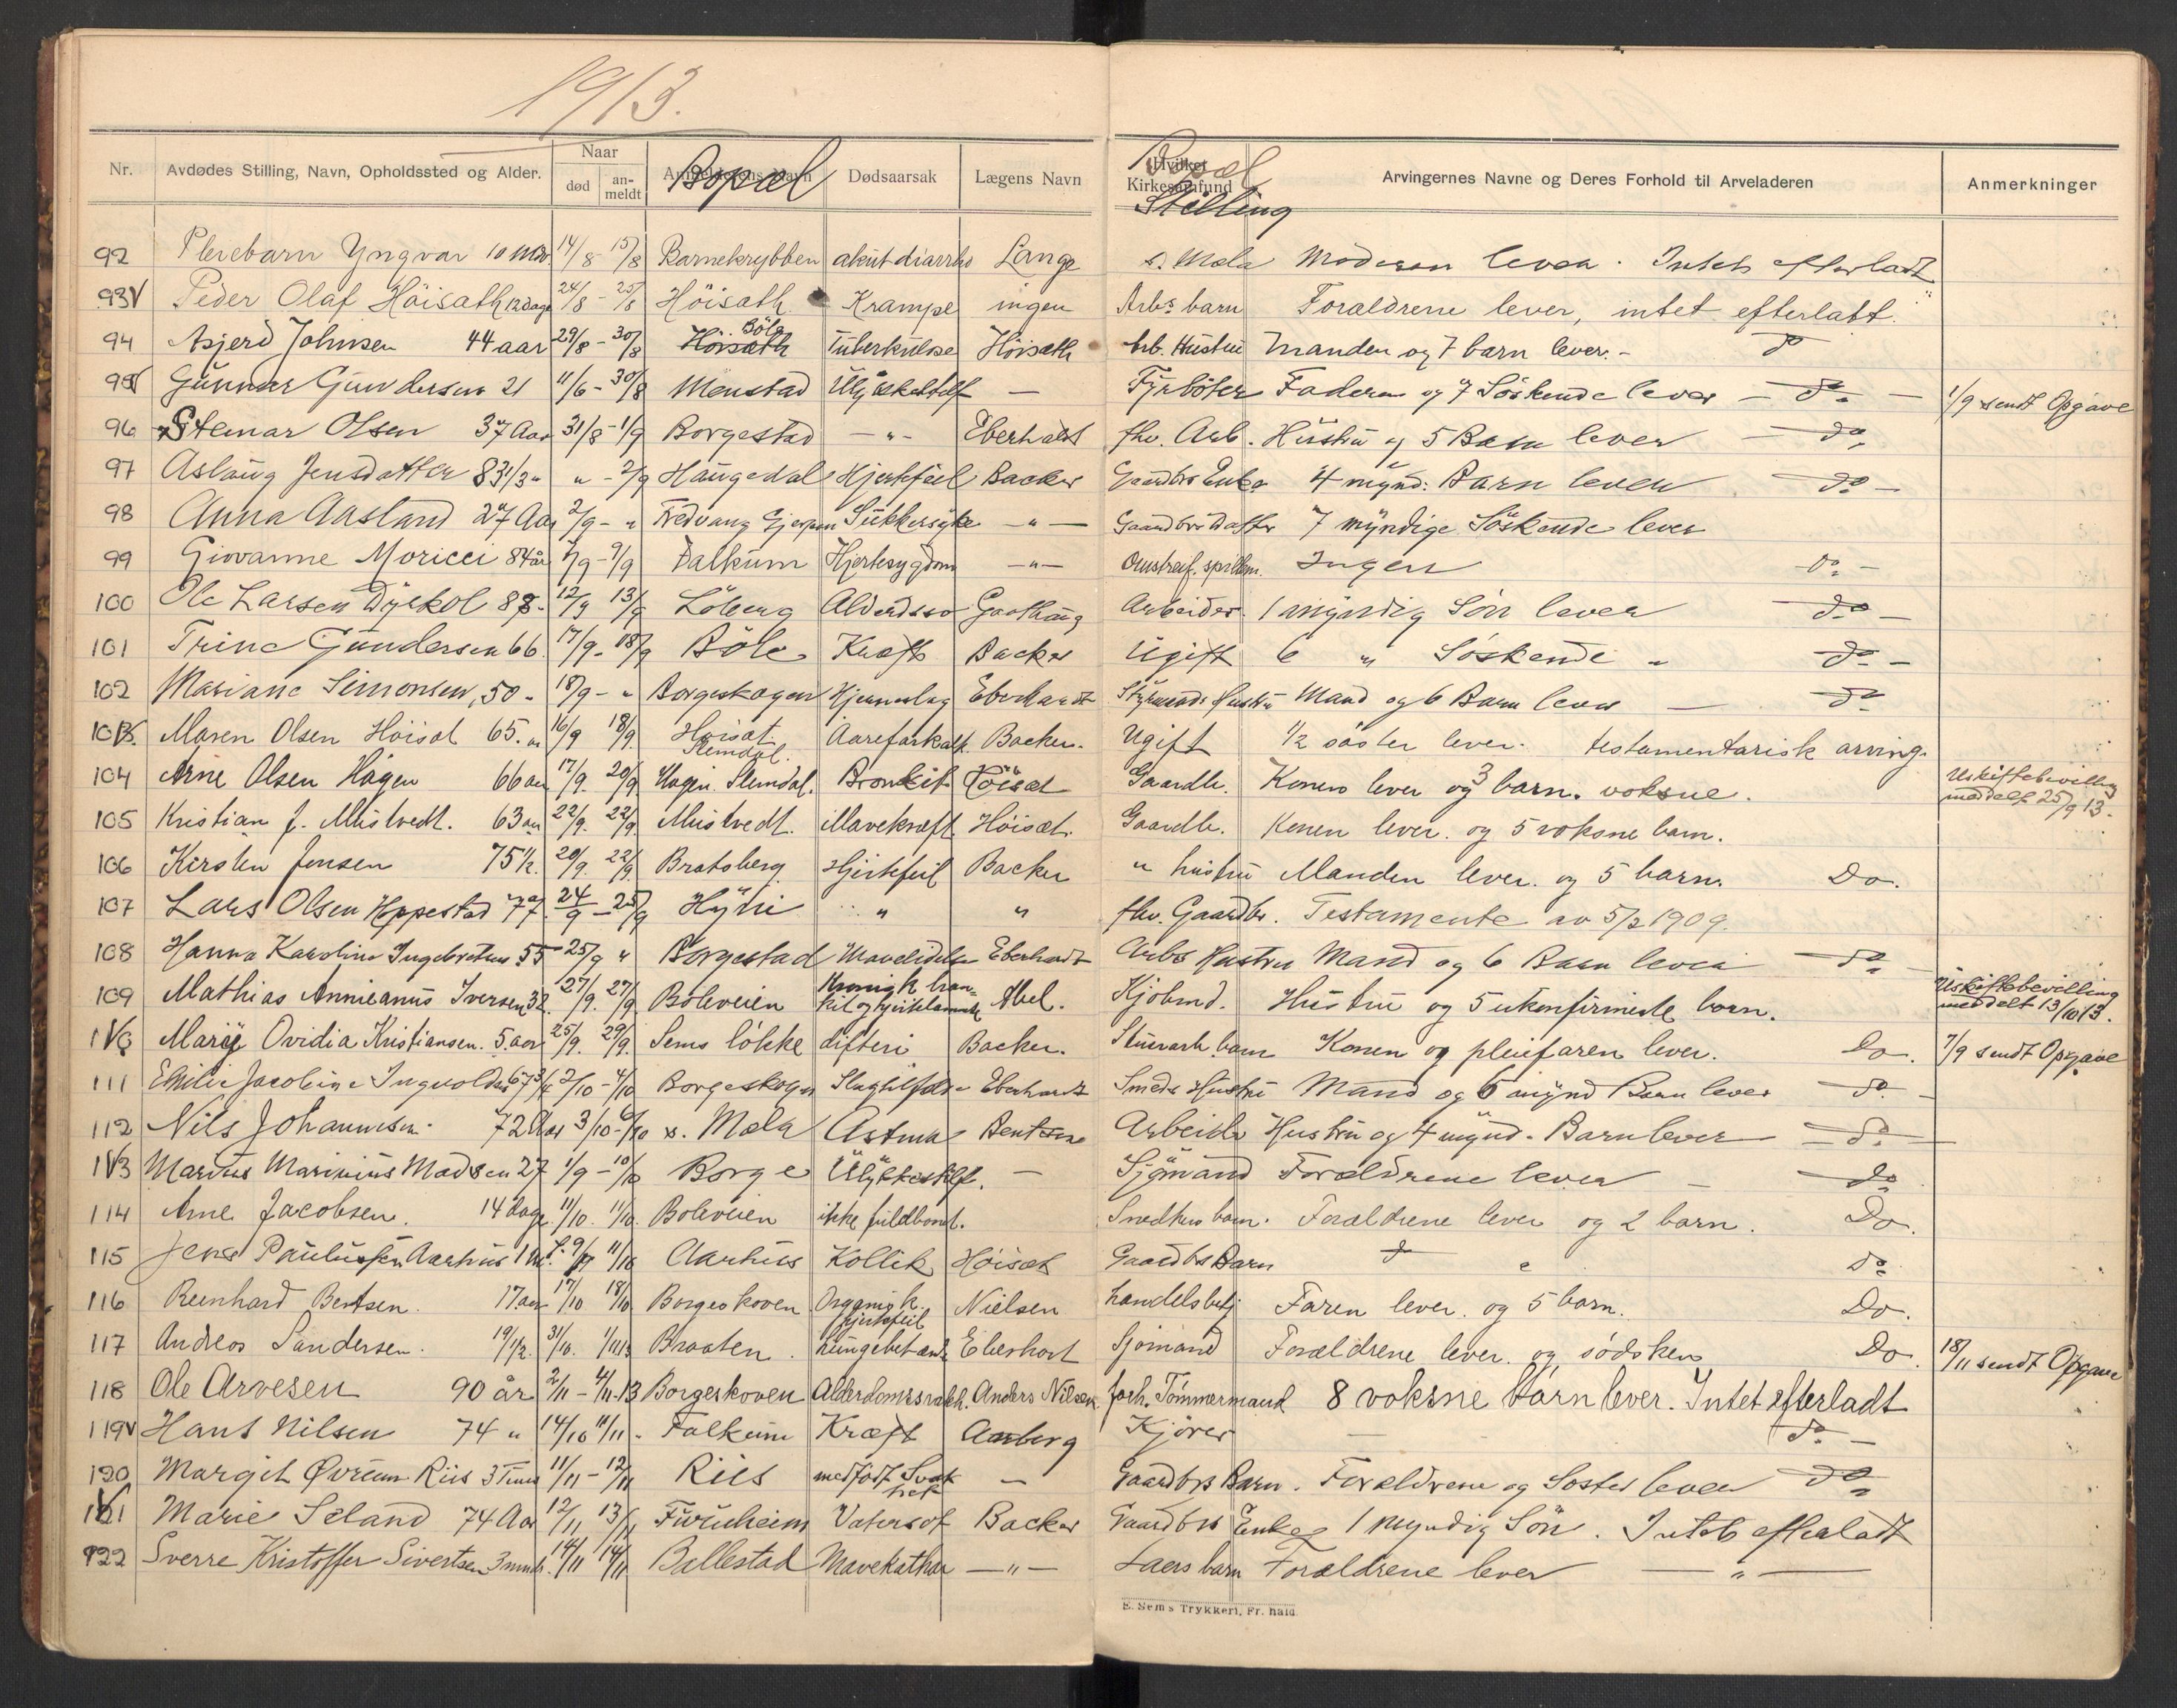 1913.
Nr. Avdødes Stilling, Navn, Opholdssted og Alder. Naar død an-meldt Bopæl Dødsaarsak Lægens Navn Hvilket Kirkesamfund Stilling Arvingernes Navne og Deres Forhold til Arveladeren Anmerkninger
92 Pleiebarn Yngvar 10 Mdr. 14/8 - 15/8 Barnekrybben akut diarrhe Lange s. Mæla Moderen lever. Intet efterladt
93 V Peder Olaf Höisæth 12 dage 24/8 - 25/8 Höisæth Krampe ingen Arbs barn Forældrene lever, intet efterlatt.
94 Asjerd Johnsen 44 aar 29/8 - 30/8 Höisæth Böle Tuberkulose Höisæth Arb. Hustru Manden og 7 barn lever. - do
95 V Gunnar Gundersen 21 11/6 - 30/8 Menstad Ulykkestilf — Fyrböter Faderen og 7 Söskende lever — do — 1/9 sendt Opgave
96 Stemar Olsen 37 Aar 31/8 - 1/9 Borgestad — " — Eberhardt fhv. Arb. Hustru og 5 Barn lever — do
97 Aslaug Jensdatter 83 1/3 " " - 2/9 Haugedal Hjertefeil Backer Gaardbrs Enke 4 mynd. Barn lever — do —
98 Anna Aasland 27 Aar 2/9 - " Fredvang Gjerpen Sukkersyke — " — Gaardbrs Datter 7 myndige Söskende lever
99 Giovanne Moricci 84 år 7/9 - 9/9 Falkum Hjertesygdom — " — Omstreif. spillem. Ingen do —
100 Ole Larsen Dyrkol 88 - 12/9 13/9 Löberg Alderdssv Gasthaug Arbeider 1 myndig Sön lever do —
101 Trine Gundersen 66. 17/9 - 18/9 Böle Kræft Backer Ugift 6 " Söskende " do —
102 Mariane Simonsen, 50 - 18/9 - " Borgeskogen Hjerneslag Eberhardt Styrmands Hustru Mand og 6 Barn lever — do
103 V. Maren Olsen Höisæt 65. aar 16/9 18/9 Höisæt Slemdal. Aareforkalk. Backer. Ugift 1/2 söster lever. testamentarisk arving.
104 Arne Olsen Hagen 66 aar 17/9. 20/9 Hagen Slemdal. Bronkit Höisæt Gaardb. Konen lever og 3 barn. voksne. Uskiftebevilling meddelt 25/9 13.
105 Kristian J. Mustvedt. 63 aar 22/9. 22/9 Mustvedt. Mavekræft Höisæt. Gaardb. Konen lever. og 5 voksne barn.
106 Kirsten Jensen 75 1/2. 20/9. 22/9. Bratsberg Hjertefeil Backer " hustru Manden lever. og 5 barn. Do.
107 Lars Olsen Hoppestad 77. 24/9 - 25/9 Hyni " " fhv. Gaardbr. Testamente av 5/2 1909.
108 Hanna Karoline Ingebretsen 55 25/9 " Borgestad Mavelidelse Eberhardt Arbs Hustru Mand og 6 Barn lever — do
109 Mathias Annieanus Iversen 32. 27/9. 27/9 Böleveien Kronisk bron-kit og hjertelammelse Abel. Kjöbmd. Hustru og 5 ukonfirmerte barn. Uskiftebevilling meddelt 13/10 13.
110 V Marie Ovidia Kristiansen. 5. aar 25/9. 29/9. Sems lökke difteri Backer. Stuerarb. barn Konen og pleiefaren lever. Do. 7/9 sendt Opgave
111 Emilie Jacobine Ingvoldsen 67 3/4 2/10 - 4/10 Borgeskogen Slagtilfælde Eberhardt Smeds Hustru Mand og 6 mynd Barn lever do. -
112 Nils Johannesen. 72 Aar 3/10 - 6/10 s. Mæla Astma Bentsen Arbeider Hustru og 4 mynd. Barn lever — do —
113 V Marius Marinius Madsen 27 1/9 - 10/10 Borge Ulykkestilf. — Sjömand Forældrene lever — do
114 Arne Jacobsen. 14 dage. 11/10. 11/10. Böleveien ikke fuldbaaret. Snedkers barn. Forældrene lever og 2 barn. Do.
115 Jens Paulussen Aarhus 1 M. 9/10 11/10 Aarhus Kollik Höisæt Gaardbs Barn do " do
116 Reenhard Bentsen. 17 aar 17/10 18/10 Borgeskoven Organisk hjertefeil Nielsen handelsbetj Faren lever. og 5 barn. Do.
117 Andreas Sandersen. 19 1/2. 31/10. 1/11 13 Braaten. Lungebetænd Eberhart Sjömand Forældrene lever. og södsken Do. 18/11 sendt Opgave
118 Ole Arvesen 90 år 2/11 - 4/11-13 Borgeskoven Alderdomssvakh. Anders Nilsen forh. Tömmermand 8 voksne barn lever. Intet efterladt
119 V Hans Nilsen 74 " 14/10 11/11 - Falkum Kræft Aaberg Kjörer — do —
120 Margit Øvrum Riis 3 Timer 11/11 - 12/11 Riis medfödt Svak het — Gaardbrs Barn. Forældrene og Söster lever do
121 V Marie Seland 74 Aar 12/11 13/11 Furuheim Vatersot Backer Gaardbrs Enke 1 myndig Sön. Intet efterladt
122 Sverre Kristoffer Sivertsen 3 mndr. 14/11 14/11 Ballestad Mavekathar — " — Laers barn Forældrene lever — " —
E. Sems Trykkeri, Fr.hald.